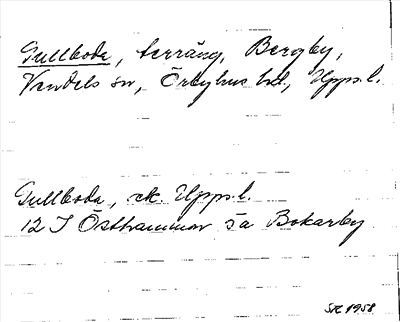 Gullboda, terräng, Bergby,
Vendels sn, Örbyhus hd, Upps.l.
Gullboda, ek. Upps.l.
12 I Östhammar sa Bokarby
SR 1958